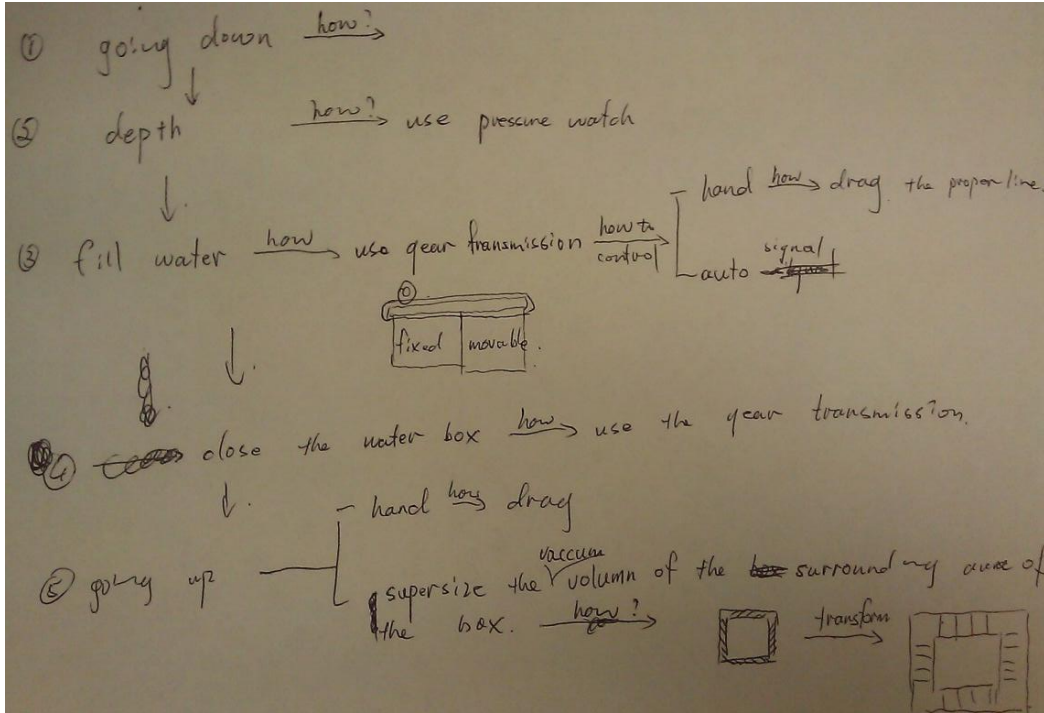 ① going down how? →
② depth how? → use pressure watch
③ fill water how → use gear transmission how to control
hand how → drag the proper line.
auto signal
fixed movable.
④ close the water box how → use the gear transmission.
⑤ going up
hand how → drag
supersize the vaccum volumn of the surrounding of
the box. how? → transform →